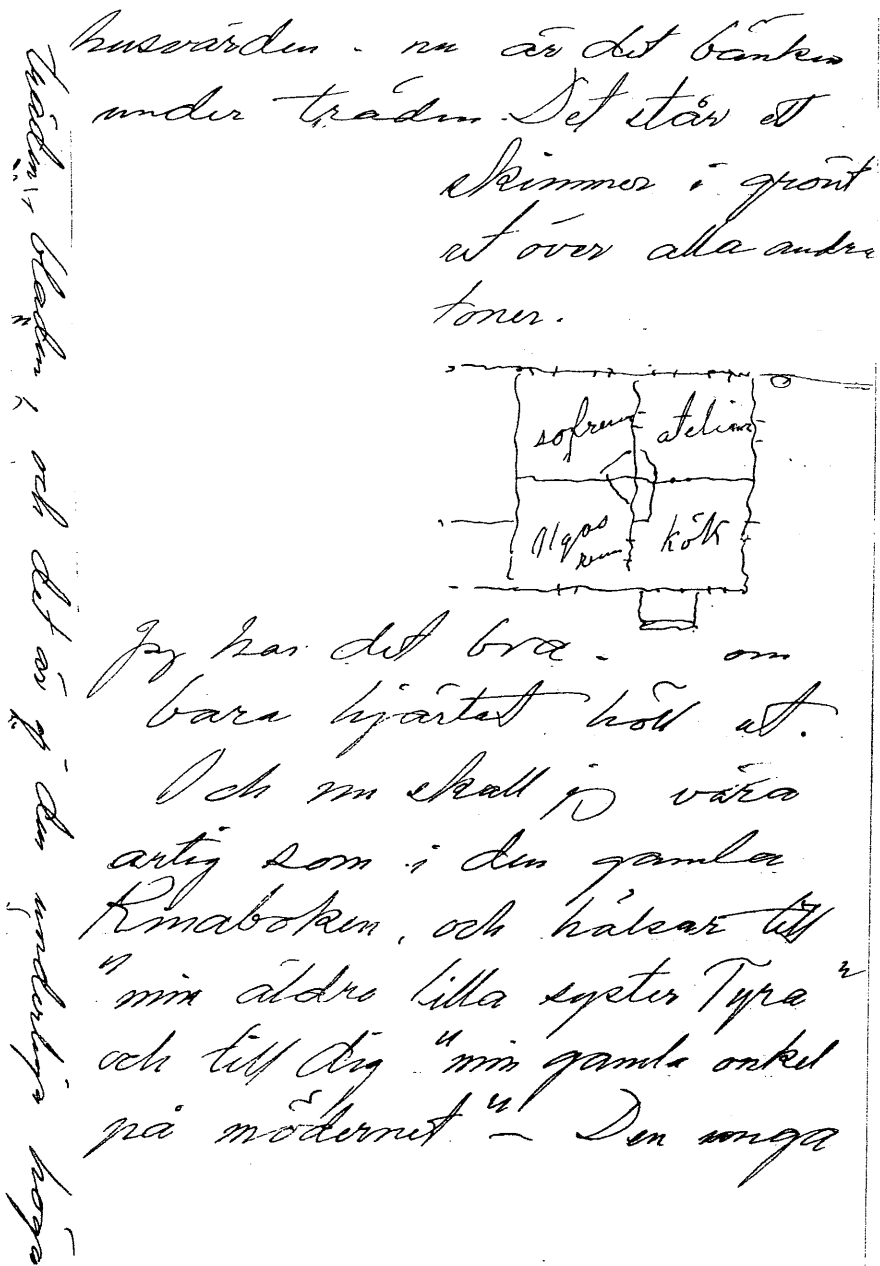 husvärden - nu är det bänken
under träden. Det står ett
skimmer i grönt
ut över alla andra
toner.
sofrum
atelier
Ilgas
rum
kök
Jag har det bra - om
bara hjärtat höll ut.
Och nu skall jag vara
artig som i den gamla
Kinaboken, och hälsar till
"min äldre lilla syster Tyra"
och till dig "min gamla onkel
på mödernet" - Den unga
träden, bladen och det är ej den underliga höga